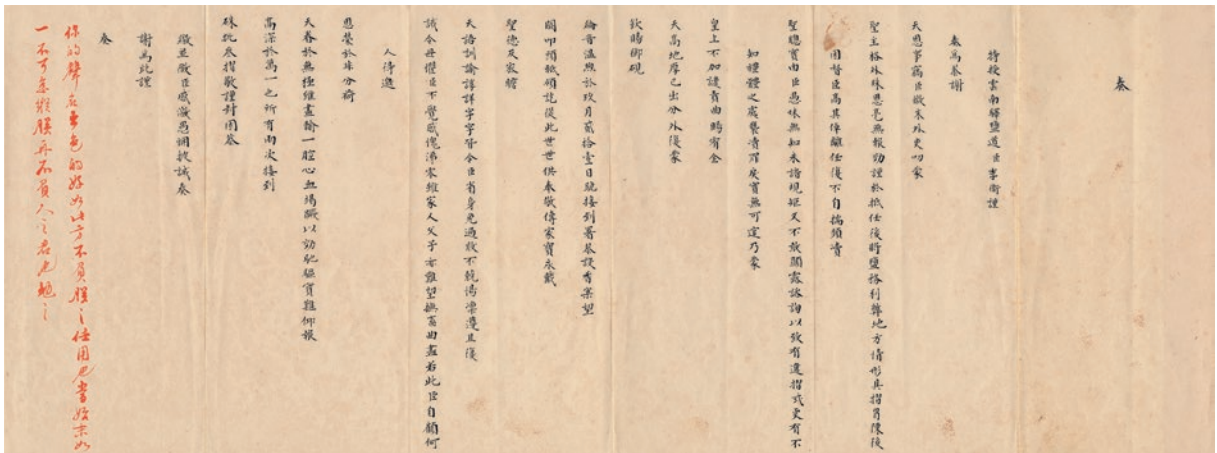 奏
特授雲南驛鹽道臣李衛謹
奏為恭謝
天恩事竊臣微末外吏叨蒙
聖主格外殊恩毫無報効謹於抵任後將鹽務利弊地方情形具摺肩陳後
因督臣高其倬離任復不自揣煩瀆
聖聰實由臣愚昧無知未諳規矩又不敢顯露諮詢以致有違摺式更有不
知禮體之處褻瀆罪戾實無可逭乃蒙
皇上不加譴責曲賜宥全
天高地厚已出分外復蒙
欽賜御硯
綸音溫煦於玖月貳拾壹日號接到署恭設香案望
闕叩頭祗領訖從此世世供奉敬傳家寶永戴
聖德及宸瞻
天語訓諭諄詳字字皆令臣省身免過敢不兢惕凜遵且復
誡令毋懼臣不覺感愧涕零雖家人父子亦難望撫育曲盡若此臣自顧何
人待邀
恩榮於非分荷
天眷於無極雖盡輸一腔心血竭蹶以効馳驅實難仰報
高深於萬一之所有兩次接到
硃批原摺敬謹封固恭
繳並微臣感激愚悃披誠奏
謝為此謹
奏
你的聲名

的好如此方不負朕之任用也當始末如
一不可怠惰朕再不負人之君也勉之